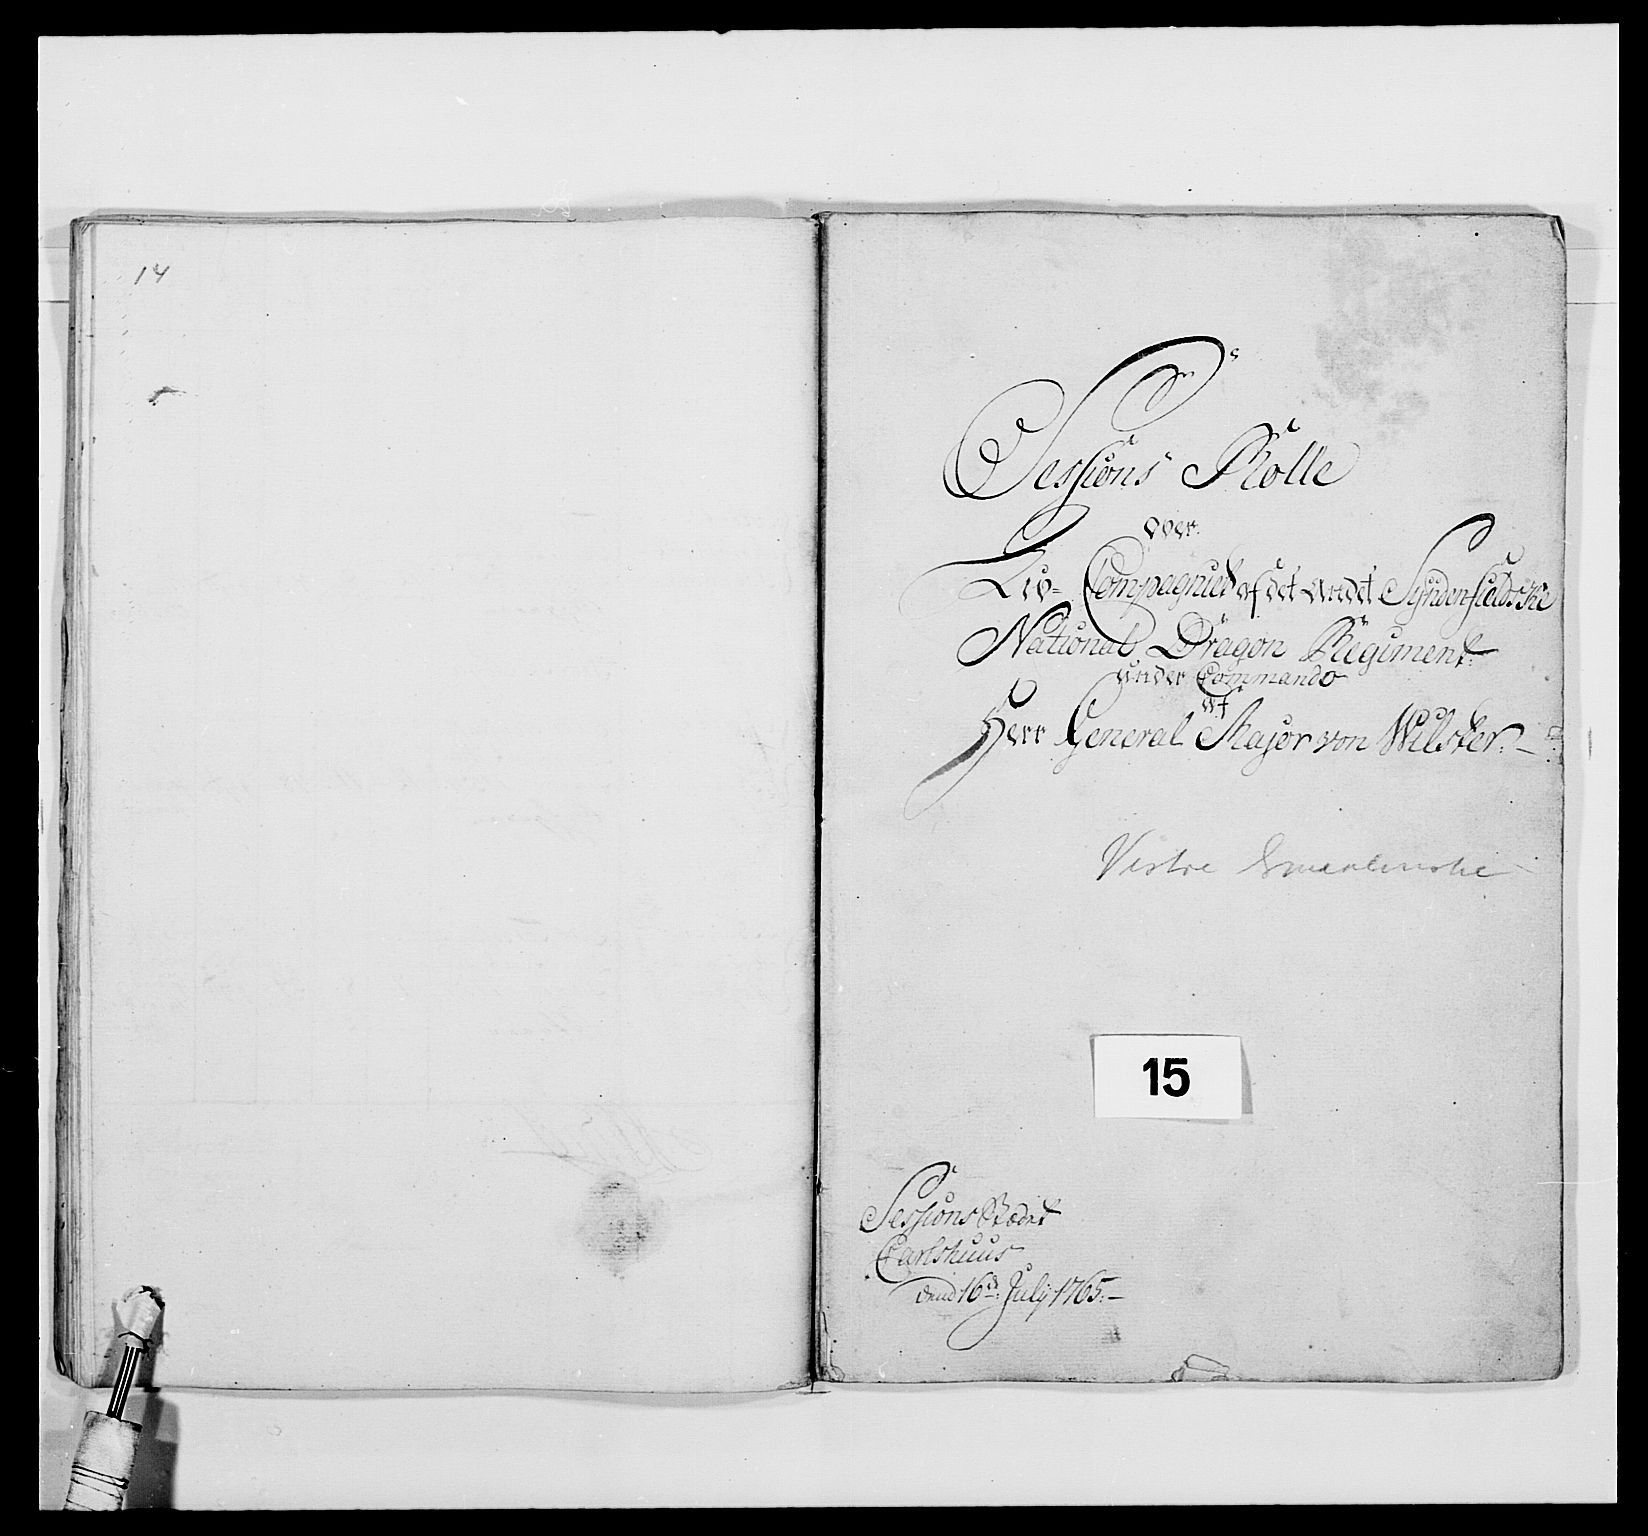 14
Sessions Rolle
over
Liv- Compagniet af det andet Syndenfieldske
National Dragon Regiment
under Commando
af
Herr General Major von Wilster.
Vestre Smaalenske
15
Sessions Stædet
Carlshuus
dend 16de July 1765.